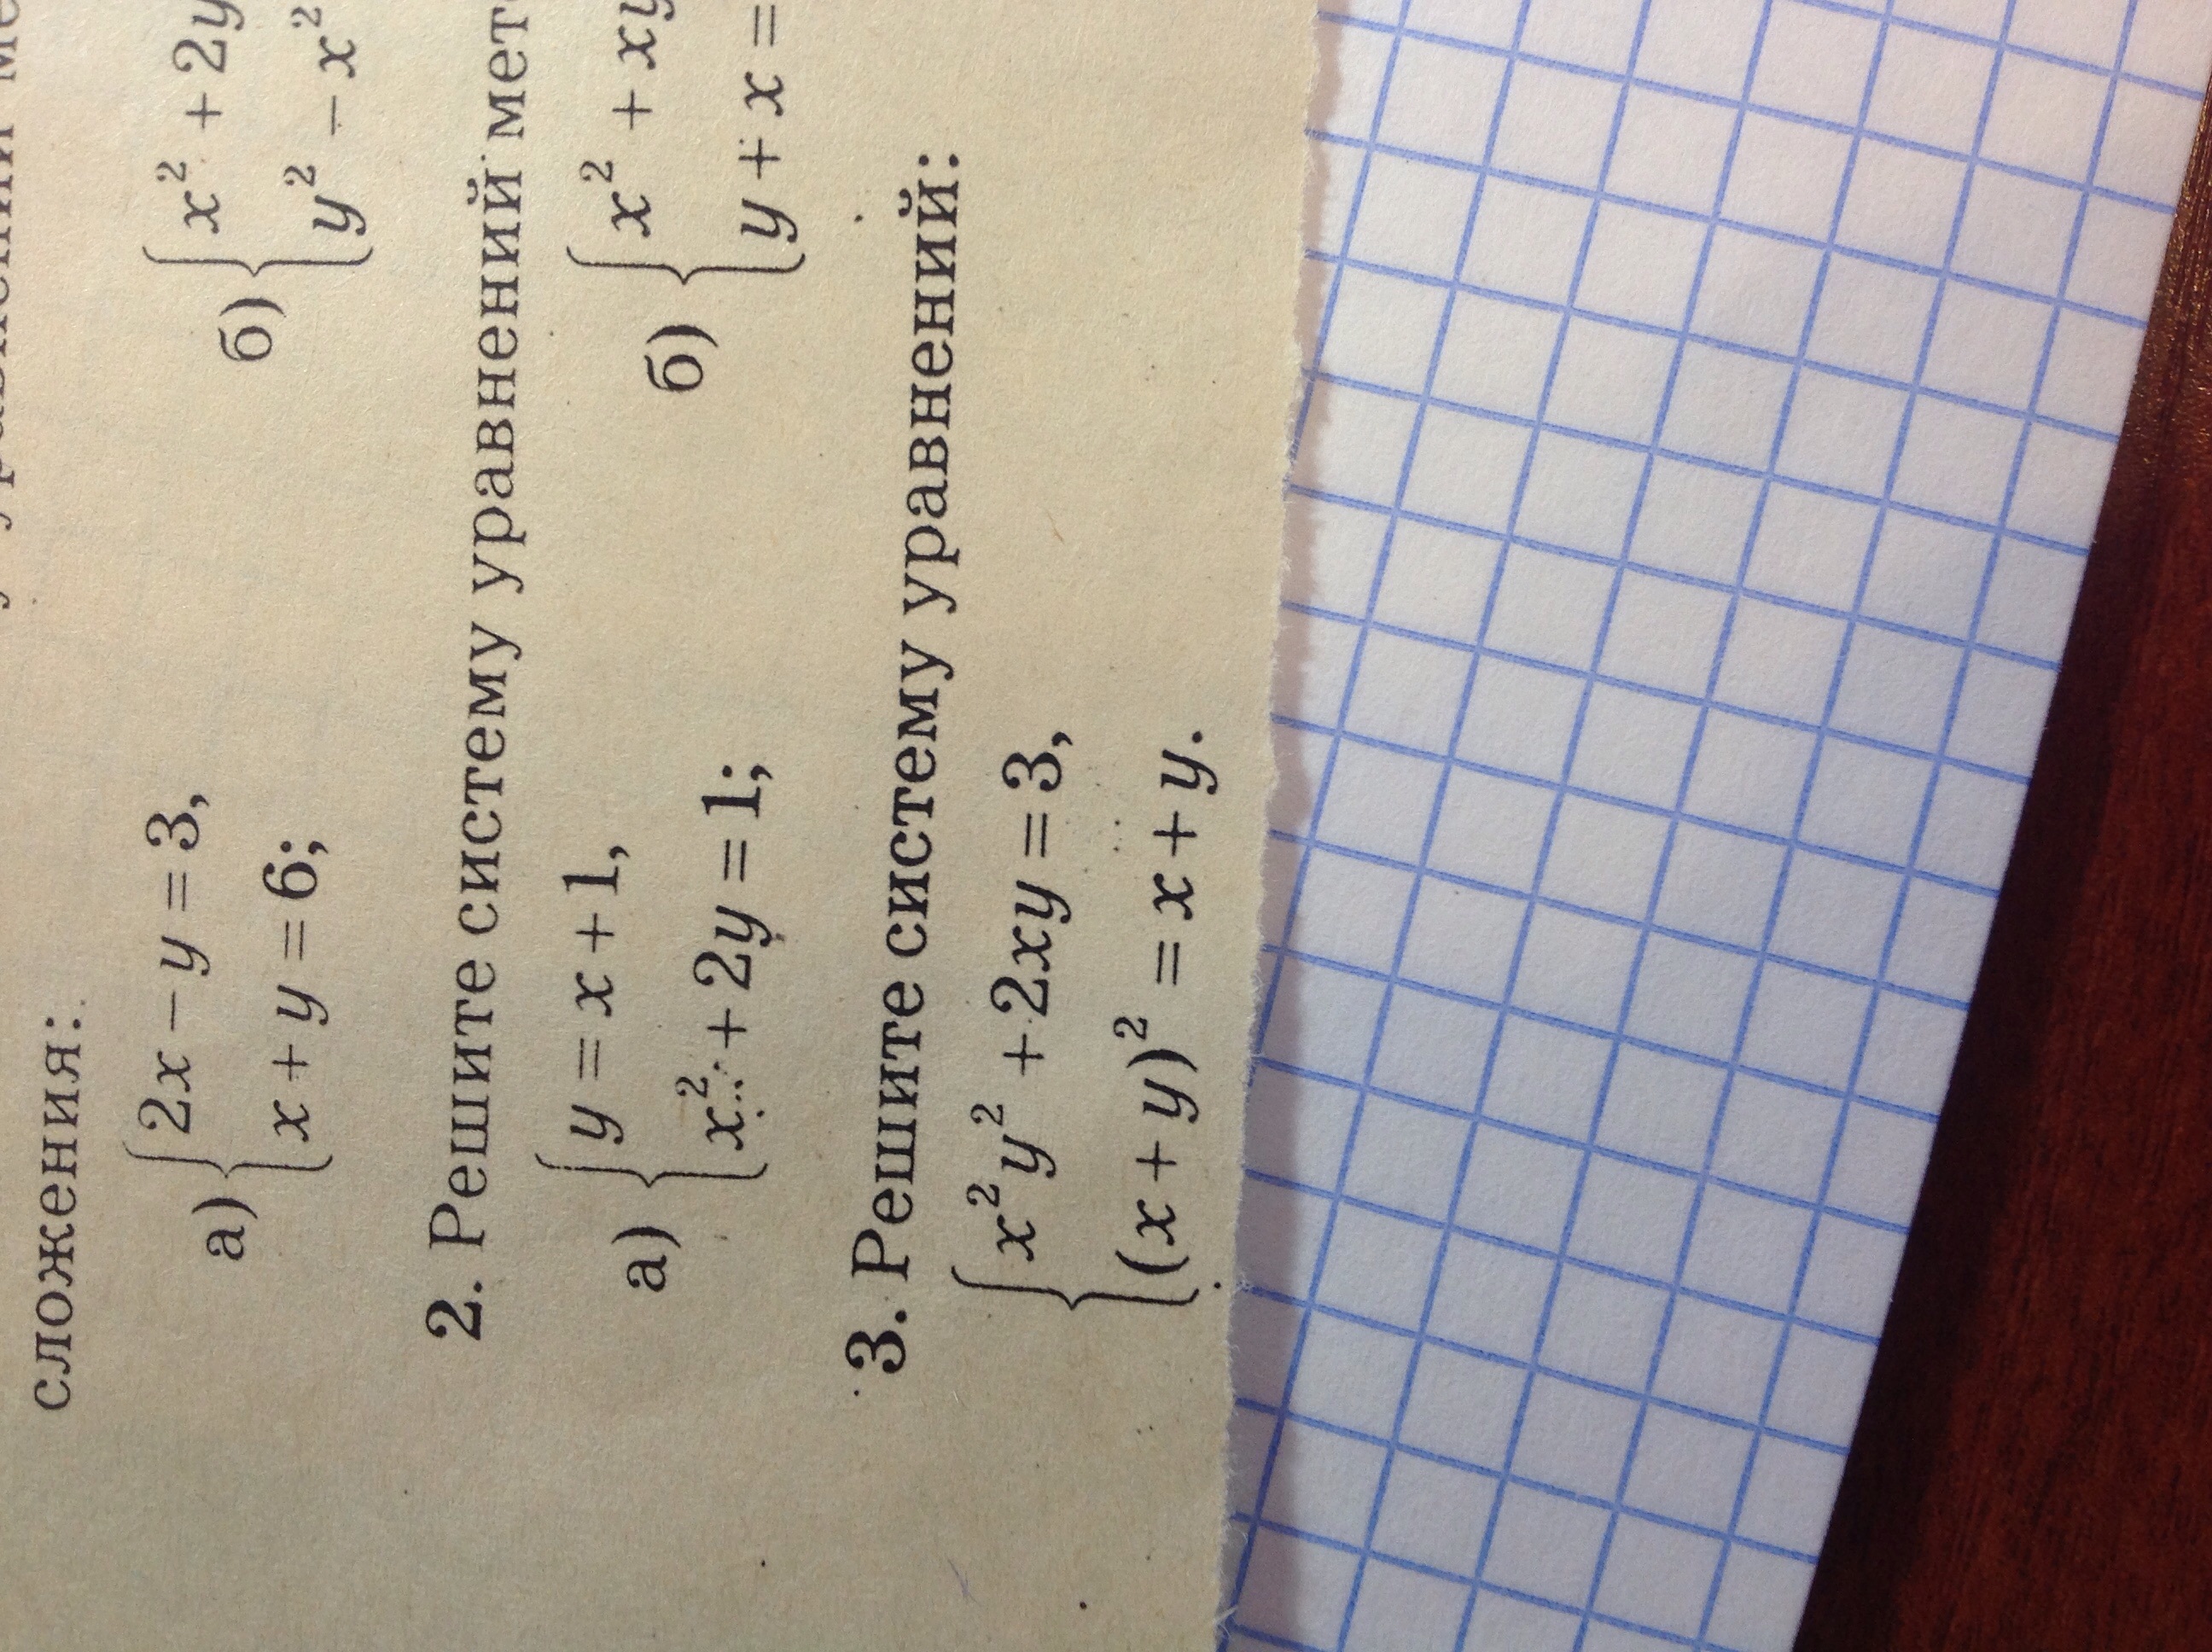 сложения:
а) { 2x − y = 3,
x + y = 6;
б) { x² + 2y
y² − x²
2. Решите систему уравнений мет
а) { y = x + 1,
x² + 2y = 1;
б) { x² + xy
y + x =
3. Решите систему уравнений:
{ x²y² + 2xy = 3,
(x + y)² = x + y.